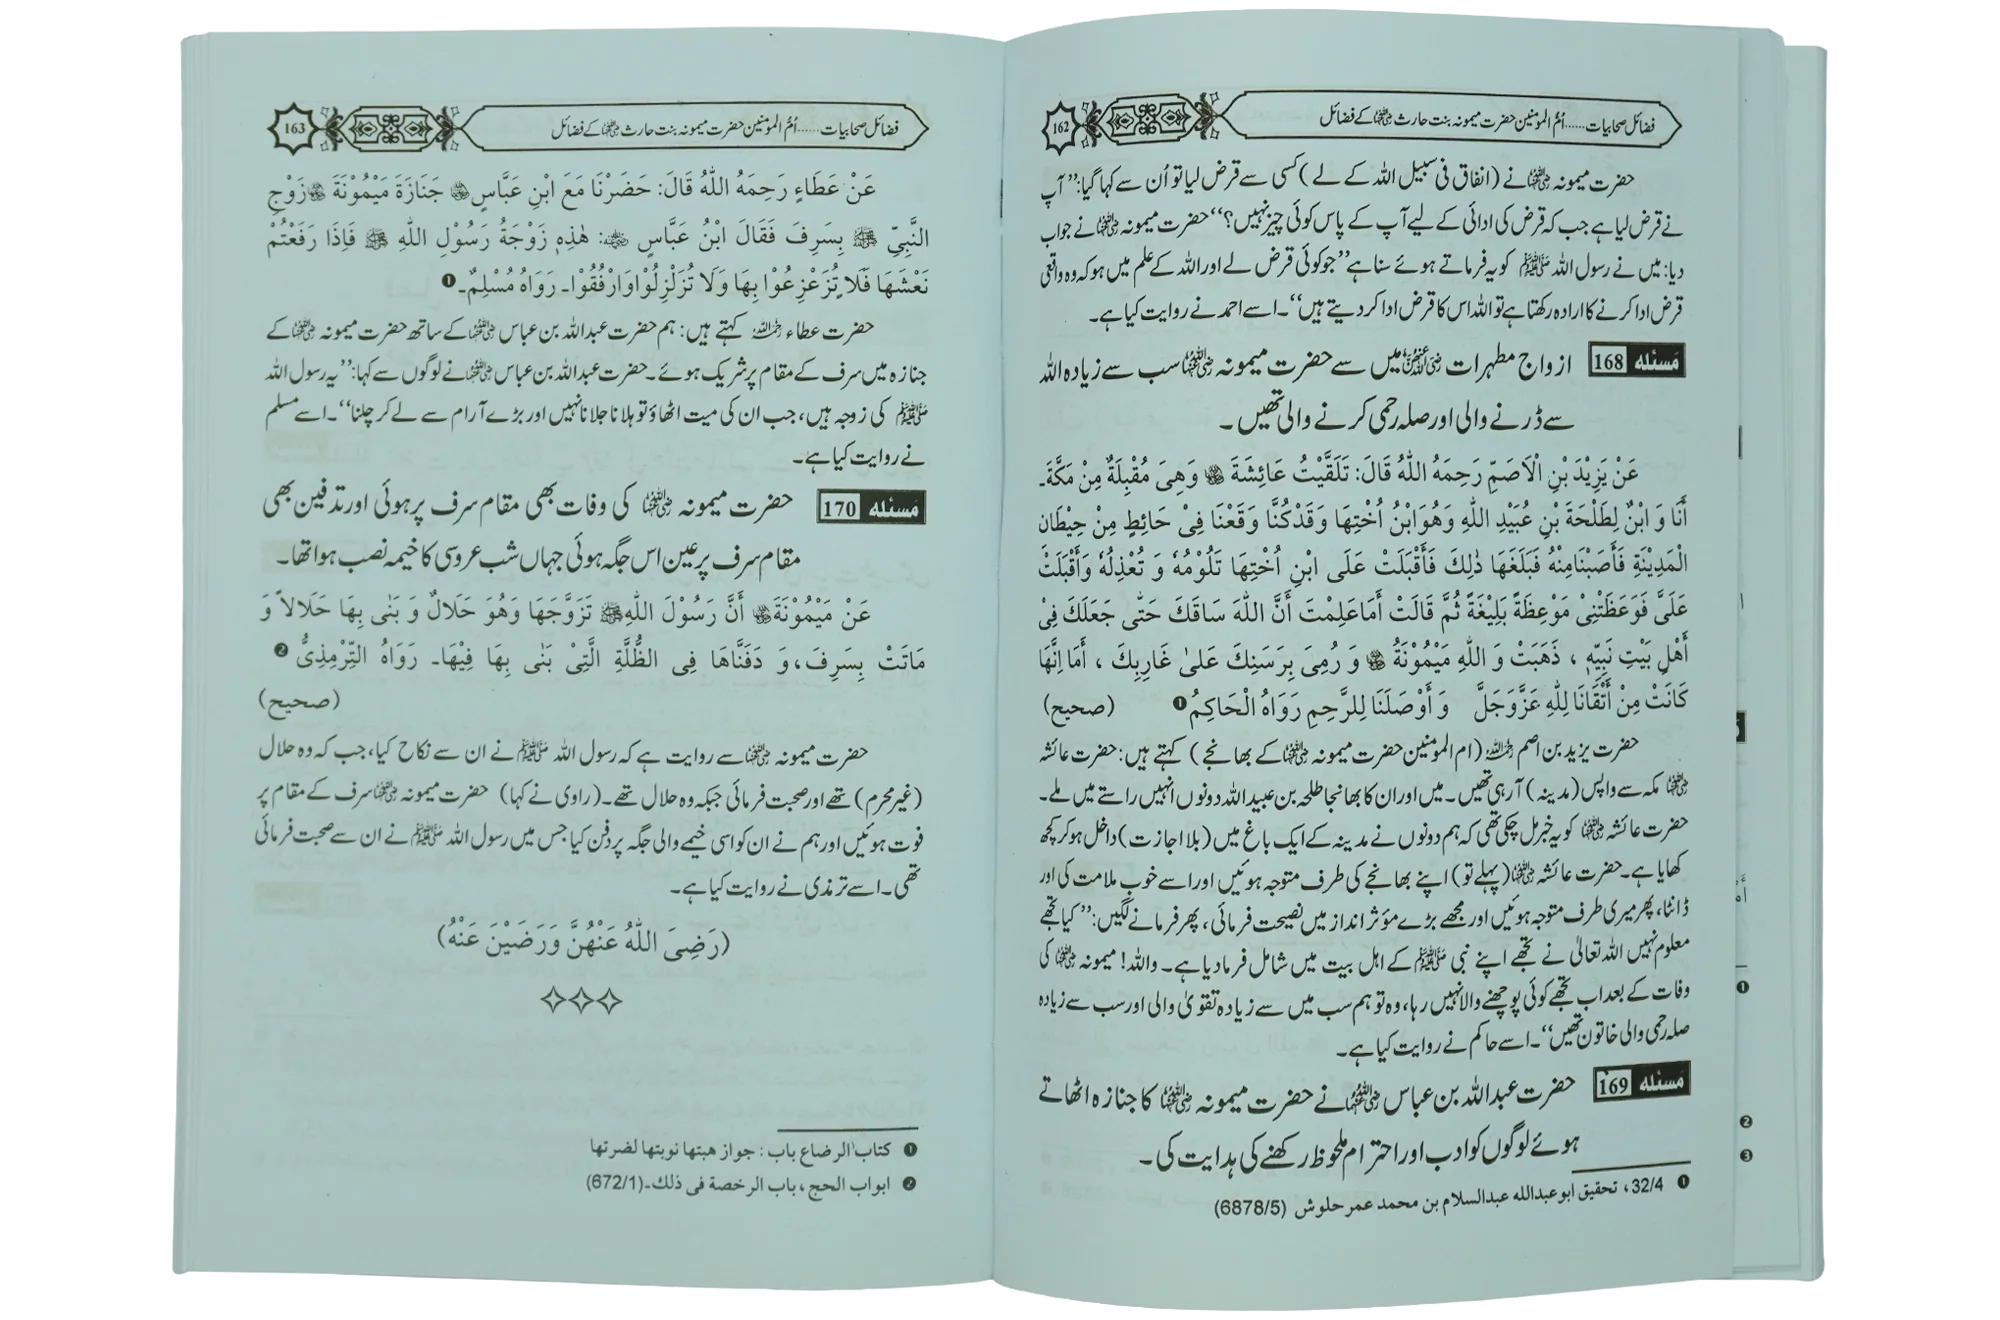 فضائل صحابیات ...... اُمّ المومنین حضرت میمونہ بنت حارث رضی اللہ عنہا کے فضائل
162
حضرت میمونہ رضی اللہ عنہا نے (انفاق فی سبیل اللہ کے لے) کسی سے قرض لیا تو اُن سے کہا گیا: ’’آپ
نے قرض لیا ہے جب کہ قرض کی ادائی کے لیے آپ کے پاس کوئی چیز نہیں؟‘‘ حضرت میمونہ رضی اللہ عنہا نے جواب
دیا: میں نے رسول اللہ ﷺ کو یہ فرماتے ہوئے سنا ہے ’’جو کوئی قرض لے اور اللہ کے علم میں ہو کہ وہ واقعی
قرض ادا کرنے کا ارادہ رکھتا ہے تو اللہ اس کا قرض ادا کر دیتے ہیں‘‘۔ اسے احمد نے روایت کیا ہے۔
مَسئله 168 ازواج مطہرات رضی اللہ عنہن میں سے حضرت میمونہ رضی اللہ عنہا سب سے زیادہ اللہ
سے ڈرنے والی اور صلہ رحمی کرنے والی تھیں۔
عَنْ يَزِيْدَ بْنِ الْاَصَمِّ رَحِمَهُ اللّٰهُ قَالَ: تَلَقَّيْتُ عَائِشَةَ رضی اللہ عنہا وَهِيَ مُقْبِلَةٌ مِنْ مَكَّةَ۔
أَنَا وَ ابْنٌ لِطَلْحَةَ بْنِ عُبَيْدِ اللّٰهِ وَهُوَابْنُ اُخْتِهَا وَقَدْكُنَّا وَقَعْنَا فِيْ حَائِطٍ مِنْ حِيْطَانِ
الْمَدِيْنَةِ فَأَصَبْنَامِنْهُ فَبَلَغَهَا ذٰلِكَ فَأَقْبَلَتْ عَلَى ابْنِ اُخْتِهَا تَلُوْمُهُ وَ تُعْذِلُهُ وَأَقْبَلَتْ
عَلَيَّ فَوَعَظَتْنِيْ مَوْعِظَةً بَلِيْغَةً ثُمَّ قَالَتْ أَمَاعَلِمْتَ أَنَّ اللّٰهَ سَاقَكَ حَتّٰى جَعَلَكَ فِيْ
أَهْلِ بَيْتِ نَبِيِّهِ ، ذَهَبَتْ وَ اللّٰهِ مَيْمُوْنَةُ رضی اللہ عنہا وَ رُمِيَ بِرَسَنِكَ عَلىٰ غَارِبِكَ ، أَمَا اِنَّهَا
كَانَتْ مِنْ أَتْقَانَا لِلّٰهِ عَزَّوَجَلَّ وَ أَوْصَلَنَا لِلرَّحِمِ رَوَاهُ الْحَاكِمُ ❶ (صحيح)
حضرت یزید بن اصم رحمہ اللہ (ام المومنین حضرت میمونہ رضی اللہ عنہا کے بھانجے) کہتے ہیں: حضرت عائشہ
رضی اللہ عنہا مکہ سے واپس (مدینہ) آ رہی تھیں۔ میں اور ان کا بھانجا طلحہ بن عبید اللہ دونوں انہیں راستے میں ملے۔
حضرت عائشہ رضی اللہ عنہا کو یہ خبر مل چکی تھی کہ ہم دونوں نے مدینہ کے ایک باغ میں (بلا اجازت) داخل ہو کر کچھ
کھایا ہے۔ حضرت عائشہ رضی اللہ عنہا (پہلے تو) اپنے بھانجے کی طرف متوجہ ہوئیں اور اسے خوب ملامت کی اور
ڈانٹا، پھر میری طرف متوجہ ہوئیں اور مجھے بڑے مؤثر انداز میں نصیحت فرمائی، پھر فرمانے لگیں: ’’کیا تجھے
معلوم نہیں اللہ تعالیٰ نے تجھے اپنے نبی ﷺ کے اہل بیت میں شامل فرما دیا ہے۔ واللہ! میمونہ رضی اللہ عنہا کی
وفات کے بعد اب تجھے کوئی پوچھنے والا نہیں رہا، وہ تو ہم سب میں سے زیادہ تقویٰ والی اور سب سے زیادہ
صلہ رحمی والی خاتون تھیں‘‘۔ اسے حاکم نے روایت کیا ہے۔
مَسئله 169 حضرت عبداللہ بن عباس رضی اللہ عنہما نے حضرت میمونہ رضی اللہ عنہا کا جنازہ اٹھاتے
ہوئے لوگوں کو ادب اور احترام ملحوظ رکھنے کی ہدایت کی۔
❶ 32/4 ، تحقیق ابو عبدالله عبدالسلام بن محمد عمر حلوش (6878/5)
فضائل صحابیات ...... اُمّ المومنین حضرت میمونہ بنت حارث رضی اللہ عنہا کے فضائل
163
عَنْ عَطَاءٍ رَحِمَهُ اللّٰهُ قَالَ: حَضَرْنَا مَعَ ابْنِ عَبَّاسٍ رضی اللہ عنہما جَنَازَةَ مَيْمُوْنَةَ رضی اللہ عنہا زَوْجِ
النَّبِيِّ ﷺ بِسَرِفَ فَقَالَ ابْنُ عَبَّاسٍ رضی اللہ عنہما: هٰذِهِ زَوْجَةُ رَسُوْلِ اللّٰهِ ﷺ فَإِذَا رَفَعْتُمْ
نَعْشَهَا فَلَا تُزَعْزِعُوْا بِهَا وَلَا تُزَلْزِلُوْاوَارْفُقُوْا۔ رَوَاهُ مُسْلِمٌ۔❶
حضرت عطاء رحمہ اللہ کہتے ہیں: ہم حضرت عبداللہ بن عباس رضی اللہ عنہما کے ساتھ حضرت میمونہ رضی اللہ عنہا کے
جنازہ میں سرف کے مقام پر شریک ہوئے۔ حضرت عبداللہ بن عباس رضی اللہ عنہما نے لوگوں سے کہا: ’’یہ رسول اللہ
ﷺ کی زوجہ ہیں، جب ان کی میت اٹھاؤ تو ہلانا جلانا نہیں اور بڑے آرام سے لے کر چلنا‘‘۔ اسے مسلم
نے روایت کیا ہے۔
مَسئله 170 حضرت میمونہ رضی اللہ عنہا کی وفات بھی مقام سرف پر ہوئی اور تدفین بھی
مقام سرف پر عین اس جگہ ہوئی جہاں شب عروسی کا خیمہ نصب ہوا تھا۔
عَنْ مَيْمُوْنَةَ رضی اللہ عنہا أَنَّ رَسُوْلَ اللّٰهِ ﷺ تَزَوَّجَهَا وَهُوَ حَلَالٌ وَ بَنٰى بِهَا حَلَالاً وَ
مَاتَتْ بِسَرِفَ، وَ دَفَنَّاهَا فِي الظُّلَّةِ الَّتِيْ بَنٰى بِهَا فِيْهَا۔ رَوَاهُ التِّرْمِذِيُّ ❷
(صحيح)
حضرت میمونہ رضی اللہ عنہا سے روایت ہے کہ رسول اللہ ﷺ نے ان سے نکاح کیا، جب کہ وہ حلال
(غیر محرم) تھے اور صحبت فرمائی جبکہ وہ حلال تھے۔ (راوی نے کہا) حضرت میمونہ رضی اللہ عنہا سرف کے مقام پر
فوت ہوئیں اور ہم نے ان کو اسی خیمے والی جگہ پر دفن کیا جس میں رسول اللہ ﷺ نے ان سے صحبت فرمائی
تھی۔ اسے ترمذی نے روایت کیا ہے۔
(رَضِيَ اللّٰهُ عَنْهُنَّ وَرَضَيْنَ عَنْهُ)
❶ کتاب الرضاع باب : جواز هبتها نوبتها لضرتها
❷ ابواب الحج ، باب الرخصة فی ذلك۔(672/1)